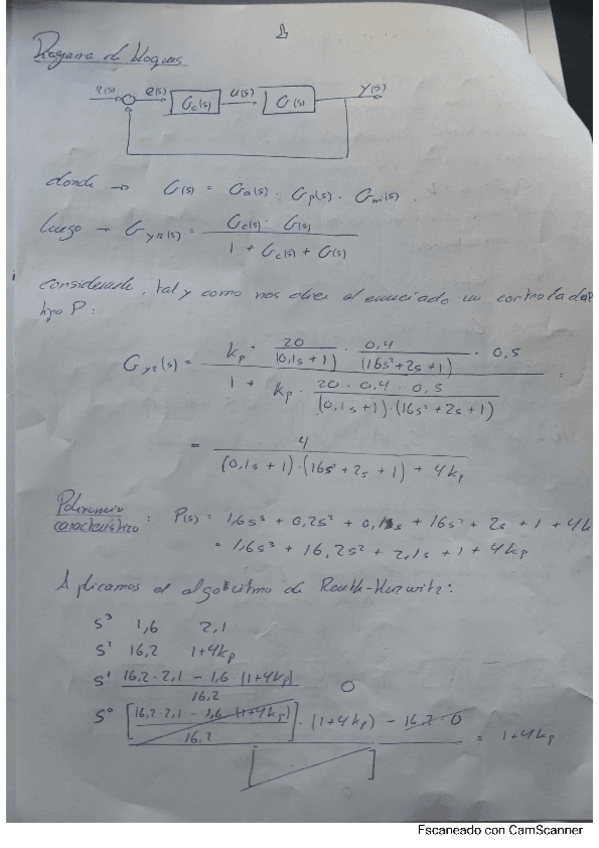 1
Diagrama de bloques
r(s) e(s) Gc(s) u(s) G(s) y(s)
donde → G(s) = Ga(s) · Gp(s) · Gm(s).
luego → Gyr(s) = Gc(s) · G(s) / 1 + Gc(s) + G(s)
considerando, tal y como nos dice el enunciado un controlador
tipo P:
Gyr(s) = kp · 20/(0,1s+1) · 0,4/(16s²+2s+1) · 0,5 / 1 + kp · 20 · 0,4 · 0,5/(0,1s+1)·(16s²+2s+1) =
= 4 / (0,1s+1)·(16s²+2s+1) + 4kp
Polinomio
característico : P(s) = 1,6s³ + 0,2s² + 0,1s + 16s² + 2s + 1 + 4k
= 1,6s³ + 16,2s² + 2,1s + 1 + 4kp
Aplicamos el algoritmo de Routh-Hurwitz:
s³ 1,6 2,1
s² 16,2 1+4kp
s¹ 16,2·2,1 - 1,6·(1+4kp) / 16,2 0
s⁰ [16,2·2,1 - 1,6·(1+4kp) / 16,2] · (1+4kp) - 16,2·0 / [ ] = 1+4kp
Escaneado con CamScanner